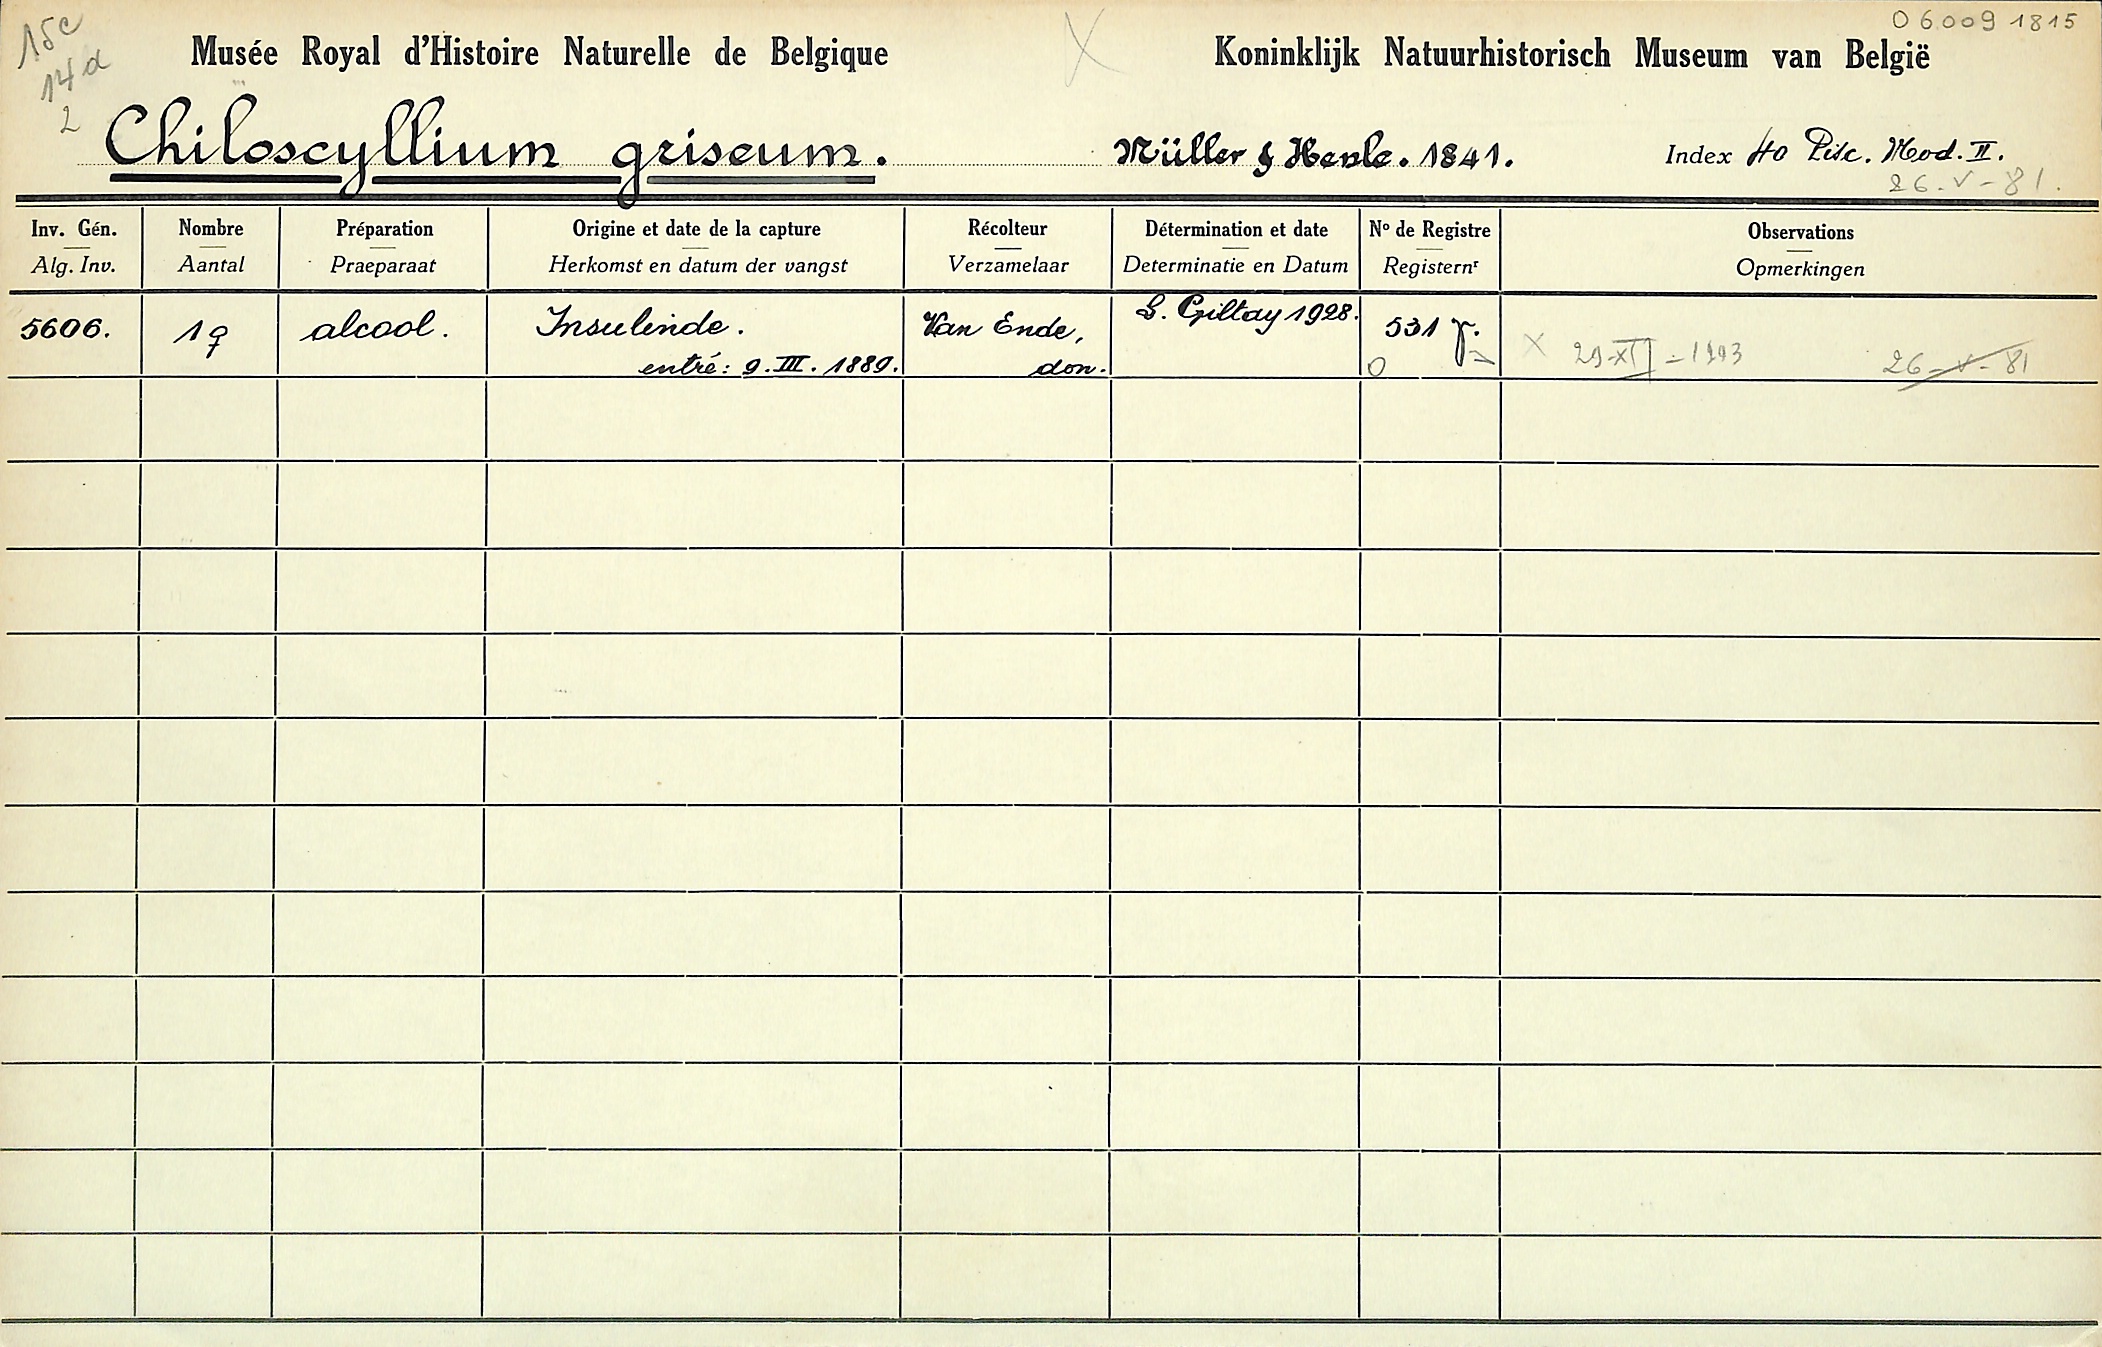 15c
14d
2
06.009 1815
Musée Royal d'Histoire Naturelle de Belgique
X
Koninklijk Natuurhistorisch Museum van België
Chiloscyllium griseum.
Müller & Henle. 1841.
Index 40 Pisc. Mod. II.
26-V-81.
Inv. Gén. Nombre Préparation Origine et date de la capture Récolteur Détermination et date Nº de Registre Observations
Alg. Inv. Aantal Praeparaat Herkomst en datum der vangst Verzamelaar Determinatie en Datum Registernʳ Opmerkingen
5606. 1♀ alcool. Insulinde. Van Ende, L. Giltay 1928. 531 γ. X 29-XII-1993 26-V-81
entré: 9.III.1889. don. O